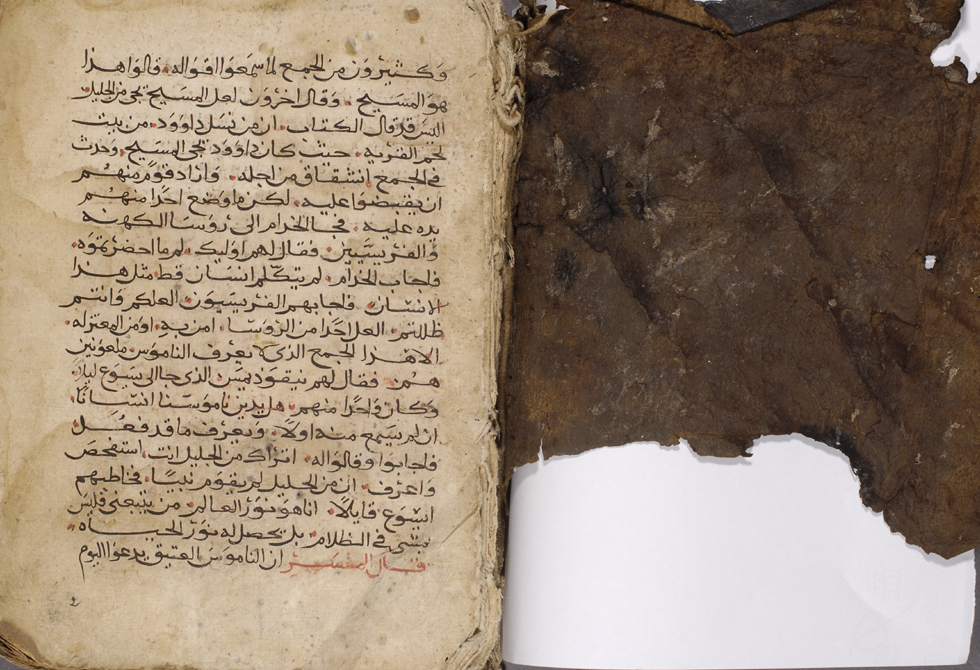 وكثيرون من الجمع لما سمعوا اقواله قالوا هذا
هو المسيح وقال اخرون لعل المسيح يجي من الجليل
اليس قد قال الكتاب ان من نسل داوود من بيت
لحم القريه حيث كان داوود يجي المسيح وحدث
في الجمع انشقاق من اجله واراد قوم منهم
ان يقبضوا عليه لكن ما وضع احدا منهم
يده عليه فجا الخدام الى روسا الكهنه
والفريسيين فقال لهم اوليك لم ما احضرتموه
فاجاب الخدام لم يتكلم انسان قط مثل هذا
الانسان فاجابهم الفريسيون العلكم وانتم
ظللتم العل احدا من الروسا امن به او من المعتزله
الا هذا الجمع الذي لا يعرف الناموس ملعونين
هم فقال لهم نيقوديمس الذي جا الى يسوع ليلا
وكان واحدا منهم هل يدين ناموسنا انسانا
ان لم يسمع منه اولا ويعرف ما قد فعل
فاجابوا وقالوا له اتراك من الجليل انت استفحص
واعرف ان من الجليل لم يقوم نبيا فخاطبهم
ايسوع قايلا انا هو نور العالم من يتبعني فليس
يمشي في الظلام بل يحصل له نور الحياه
قال المفسر ان الناموس العتيق يدعوا اليوم